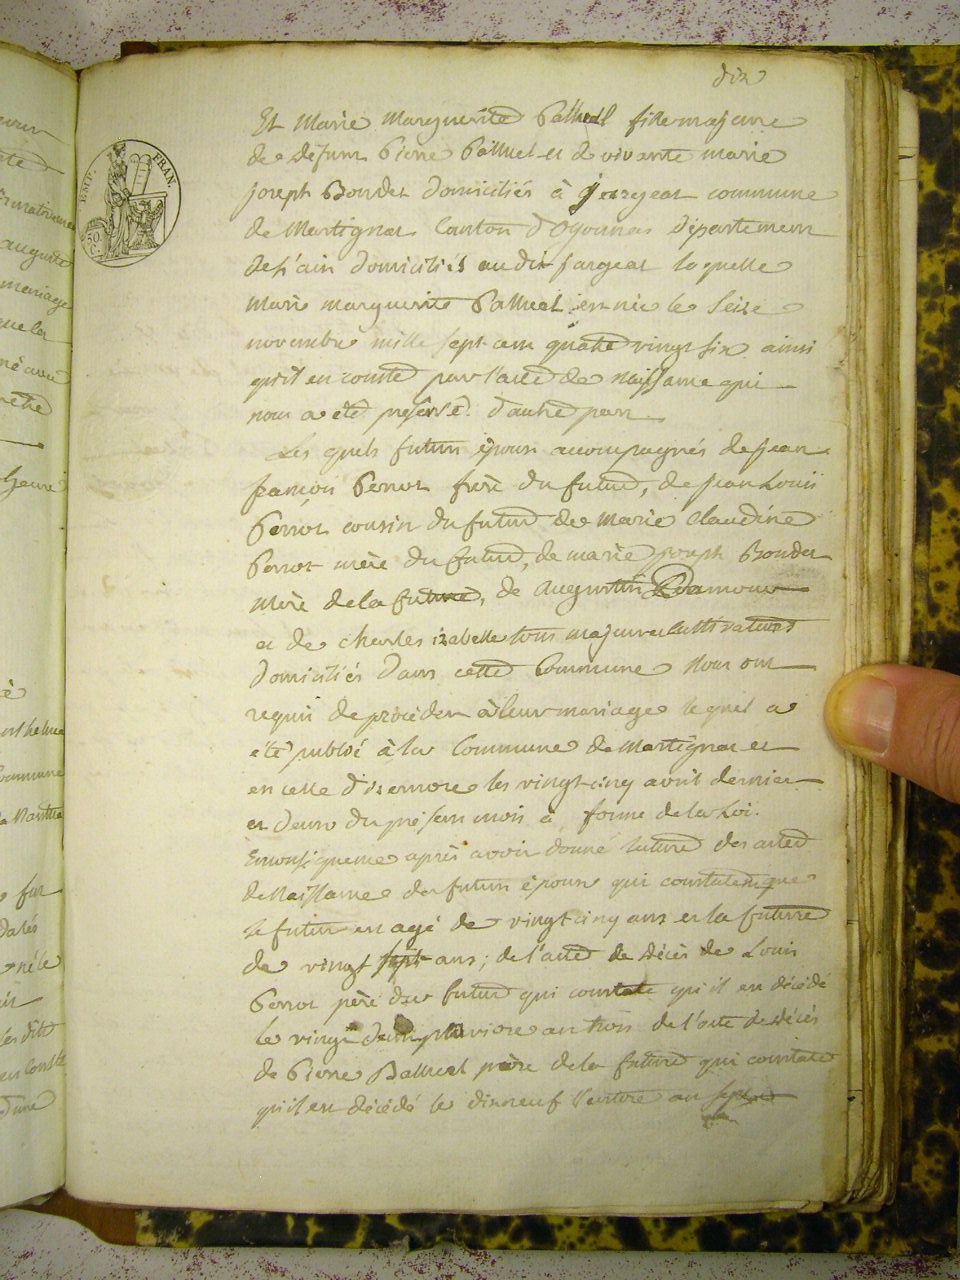 dix
EMP. FRAN.
50 C.
Et Marie Marguerite Palluel fille majeure
de défunt Pierre Palluel et de vivante marie
joseph Bondet domiciliés à jeurgeat commune
de Martignat Canton d'Oyonnas département
de l'ain domiciliés audit jargeat laquelle
marie marguerite Palluel est née le seise
novembre mille sept cent quatre vingt six ainsi
qu'il en conste par l'acte de naissance qui
nous a été présenté d'autre part
Les quels futurs époux accompagnés de jean
françois Perrot frère du futur, de jean Louis
Perrot cousin du futur de Marie Claudine
Perrot mère du futur, de marie joseph Bondet
Mère de la future, de Augustin Damour
et de charles izabelle tous majeurs cultivateurs
domiciliés dans cette Commune Nous ont
requis de procéder à leur mariage lequel a
été publié à la Commune de Martignat et
en celle d'izernore les vingt-cinq avril dernier
et deux du présent mois à forme de la Loi.
En conséquence après avoir donné lecture des actes
de Naissance des futurs époux qui constatent que
le futur est agé de vingt cinq ans et la future
de vingt ans; de l'acte de décès de Louis
Perrot père du futur qui constate qu'il est décédé
le vingt deux pluviose an trois de l'acte de décès
de Pierre Palluel père de la future qui constate
qu'il est décédé le dixneuf Ventose an